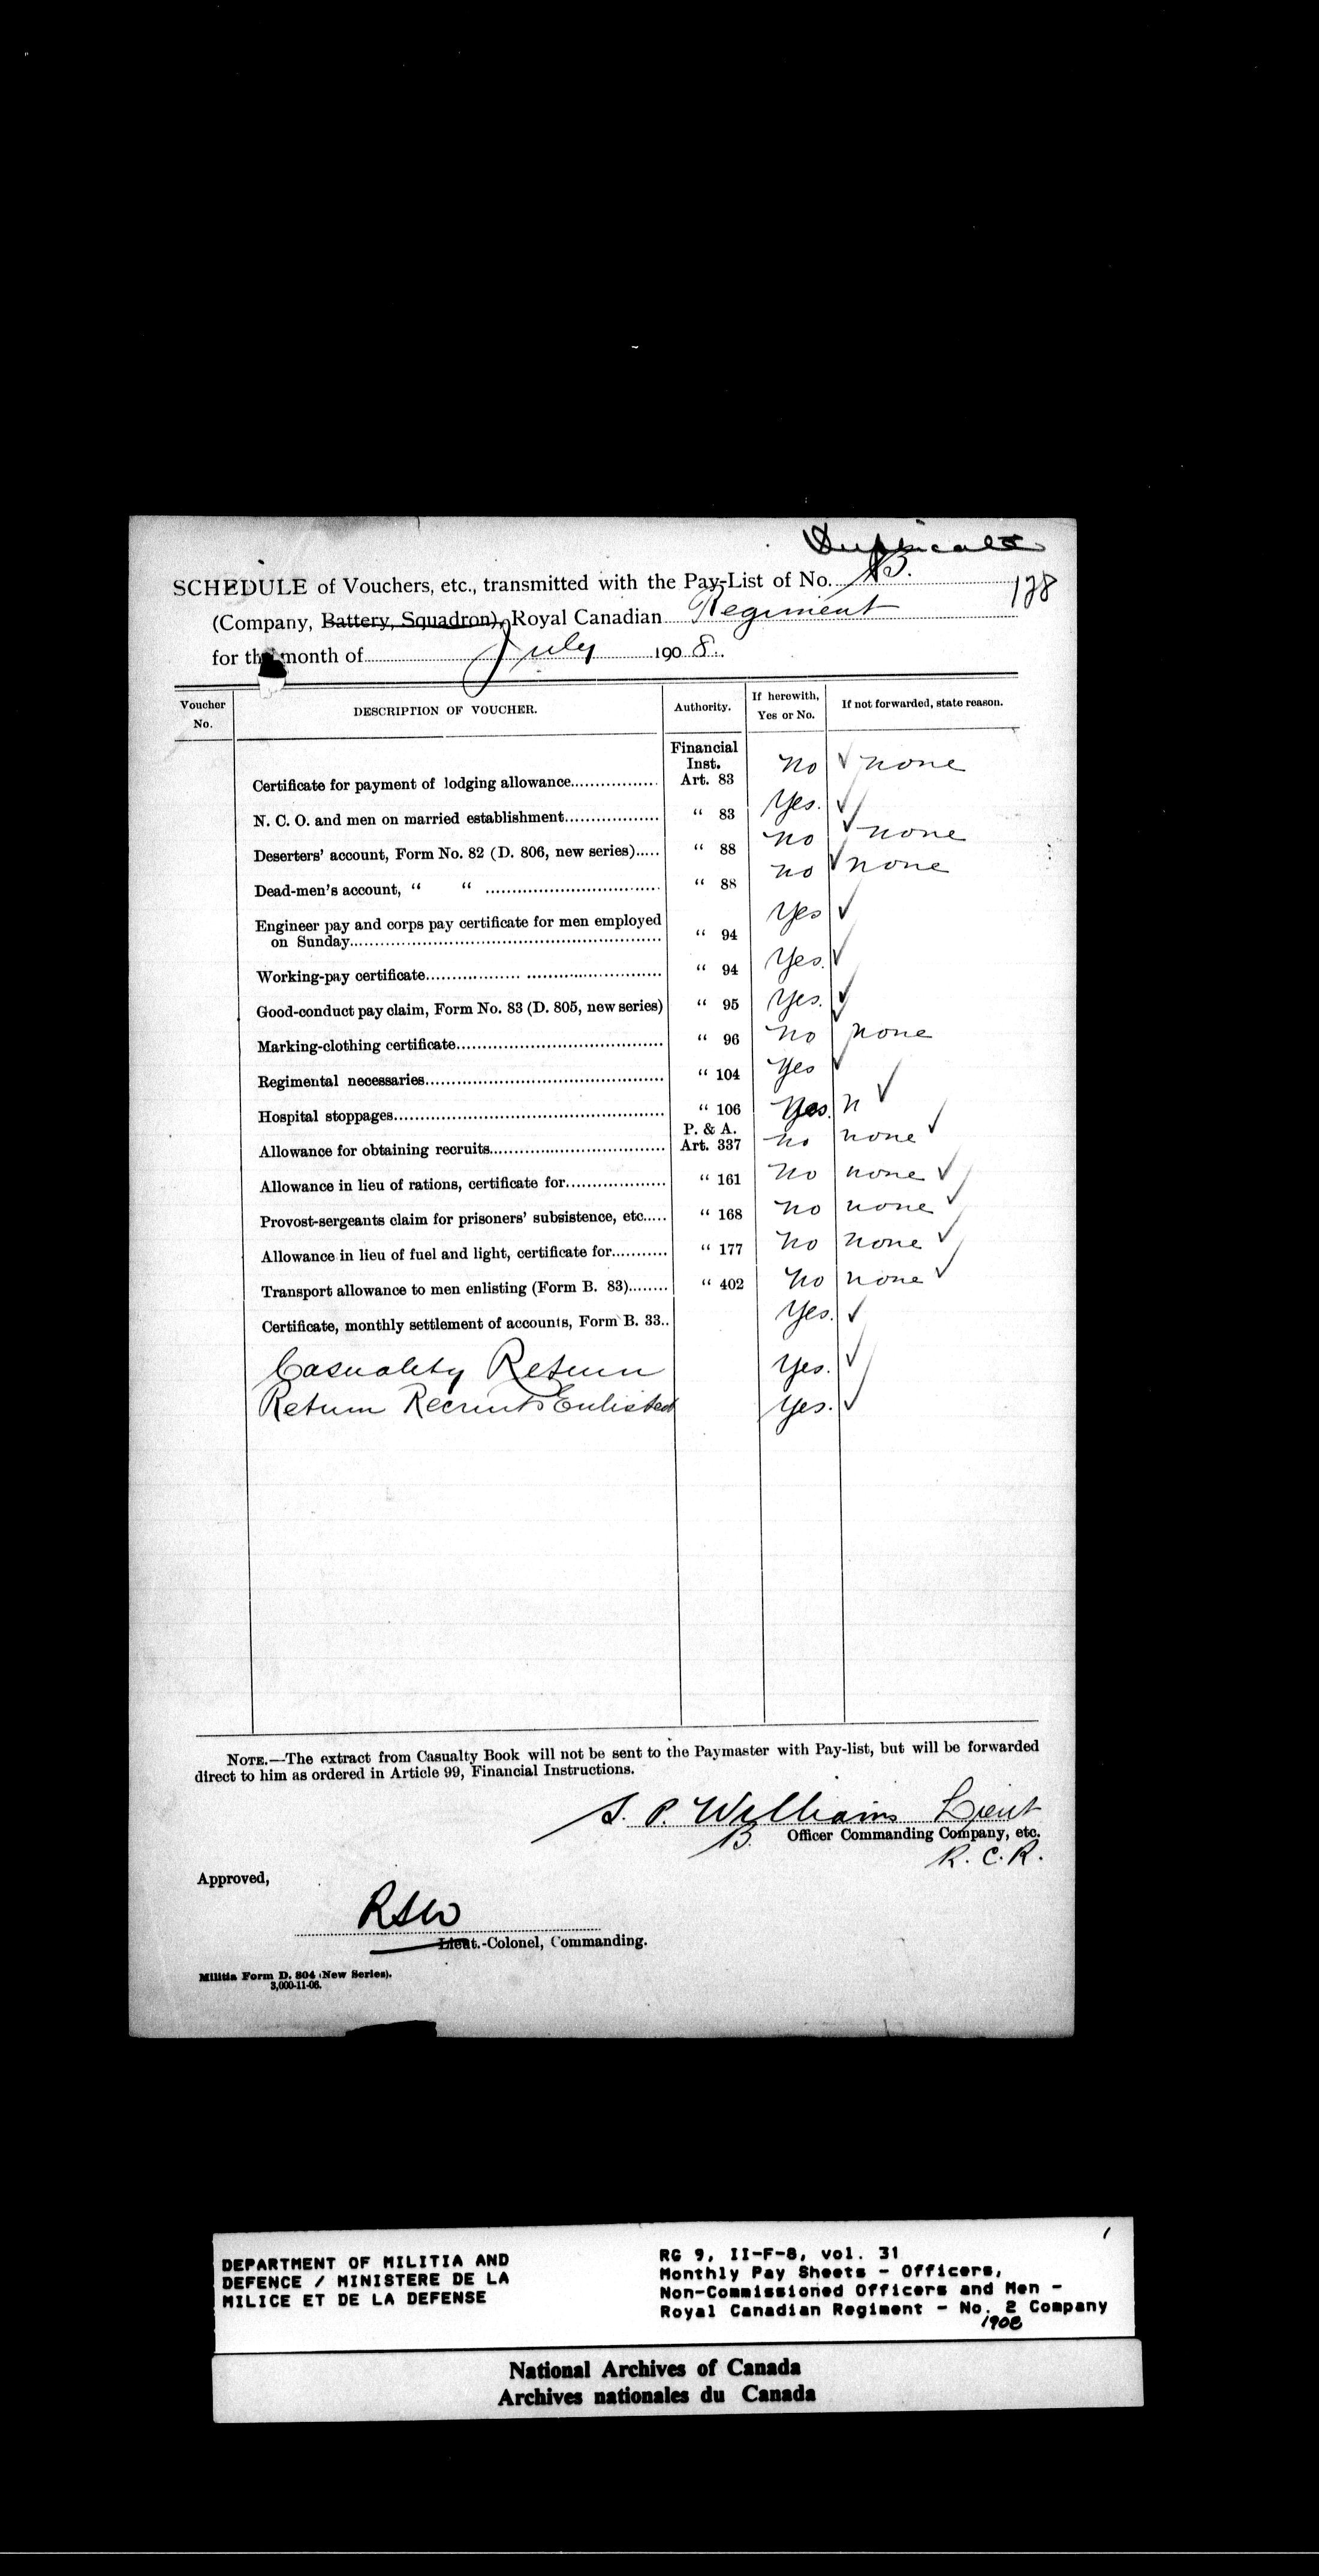 Duplicate
SCHEDULE of Vouchers, etc., transmitted with the Pay-List of No. B.
(Company, Battery, Squadron), Royal Canadian Regiment 128
for the month of July 1908.
Voucher No. DESCRIPTION OF VOUCHER. Authority. If herewith, Yes or No. If not forwarded, state reason.
Financial Inst.
Certificate for payment of lodging allowance Art. 83 no ✓ none
N. C. O. and men on married establishment " 83 Yes. ✓
Deserters' account, Form No. 82 (D. 806, new series) " 88 no ✓ none
Dead-men's account, " " " 88 no ✓ none
Engineer pay and corps pay certificate for men employed
on Sunday " 94 Yes ✓
Working-pay certificate " 94 Yes. ✓
Good-conduct pay claim, Form No. 83 (D. 805, new series) " 95 Yes. ✓
Marking-clothing certificate " 96 no none
Regimental necessaries " 104 Yes ✓
Hospital stoppages " 106 Yes. n ✓
P. & A.
Allowance for obtaining recruits Art. 337 no none ✓
Allowance in lieu of rations, certificate for " 161 no none ✓
Provost-sergeants claim for prisoners' subsistence, etc " 168 no none ✓
Allowance in lieu of fuel and light, certificate for " 177 no none ✓
Transport allowance to men enlisting (Form B. 83) " 402 no none ✓
Certificate, monthly settlement of accounts, Form B. 33.. Yes. ✓
Casuality Return Yes. ✓
Return Recruits Enlisted Yes. ✓
NOTE.—The extract from Casualty Book will not be sent to the Paymaster with Pay-list, but will be forwarded
direct to him as ordered in Article 99, Financial Instructions.
S. P. Williams Lieut
B. Officer Commanding Company, etc.
R. C. R.
Approved,
Lieut.-Colonel, Commanding.
Militia Form D. 804 (New Series).
3,000-11-06.
DEPARTMENT OF MILITIA AND
DEFENCE / MINISTERE DE LA
MILICE ET DE LA DEFENSE
RG 9, II-F-8, vol. 31
Monthly Pay Sheets - Officers,
Non-Commissioned Officers and Men -
Royal Canadian Regiment - No. 2 Company
1908
National Archives of Canada
Archives nationales du Canada